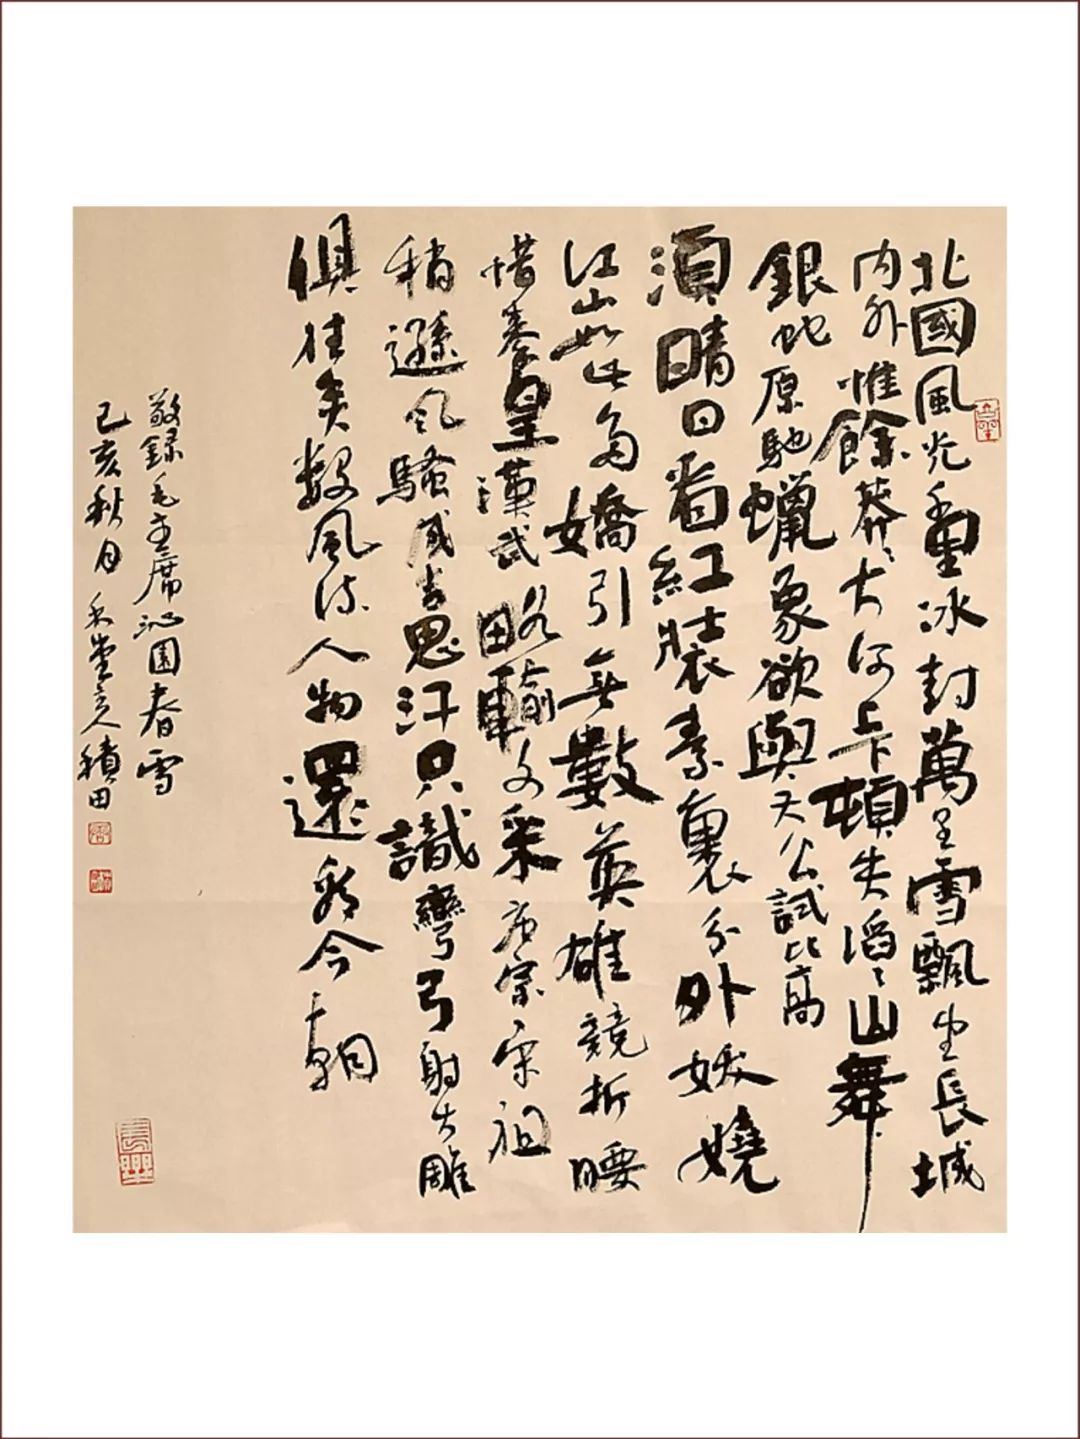 北國風光千里冰封萬里雪飄望長城
内外惟餘莽〻大河上下頓失滔〻山舞
銀蛇原馳蠟象欲與天公試比高
須晴日看紅裝素裹分外妖嬈
江山如此多嬌引無數英雄競折腰
惜秦皇漢武略輸文采唐宗宋祖
稍遜風騷成吉思汗只識彎弓射大雕
俱往矣數風流人物還看今朝
敬錄毛主席沁園春雪
己亥秋月 堂主人積田